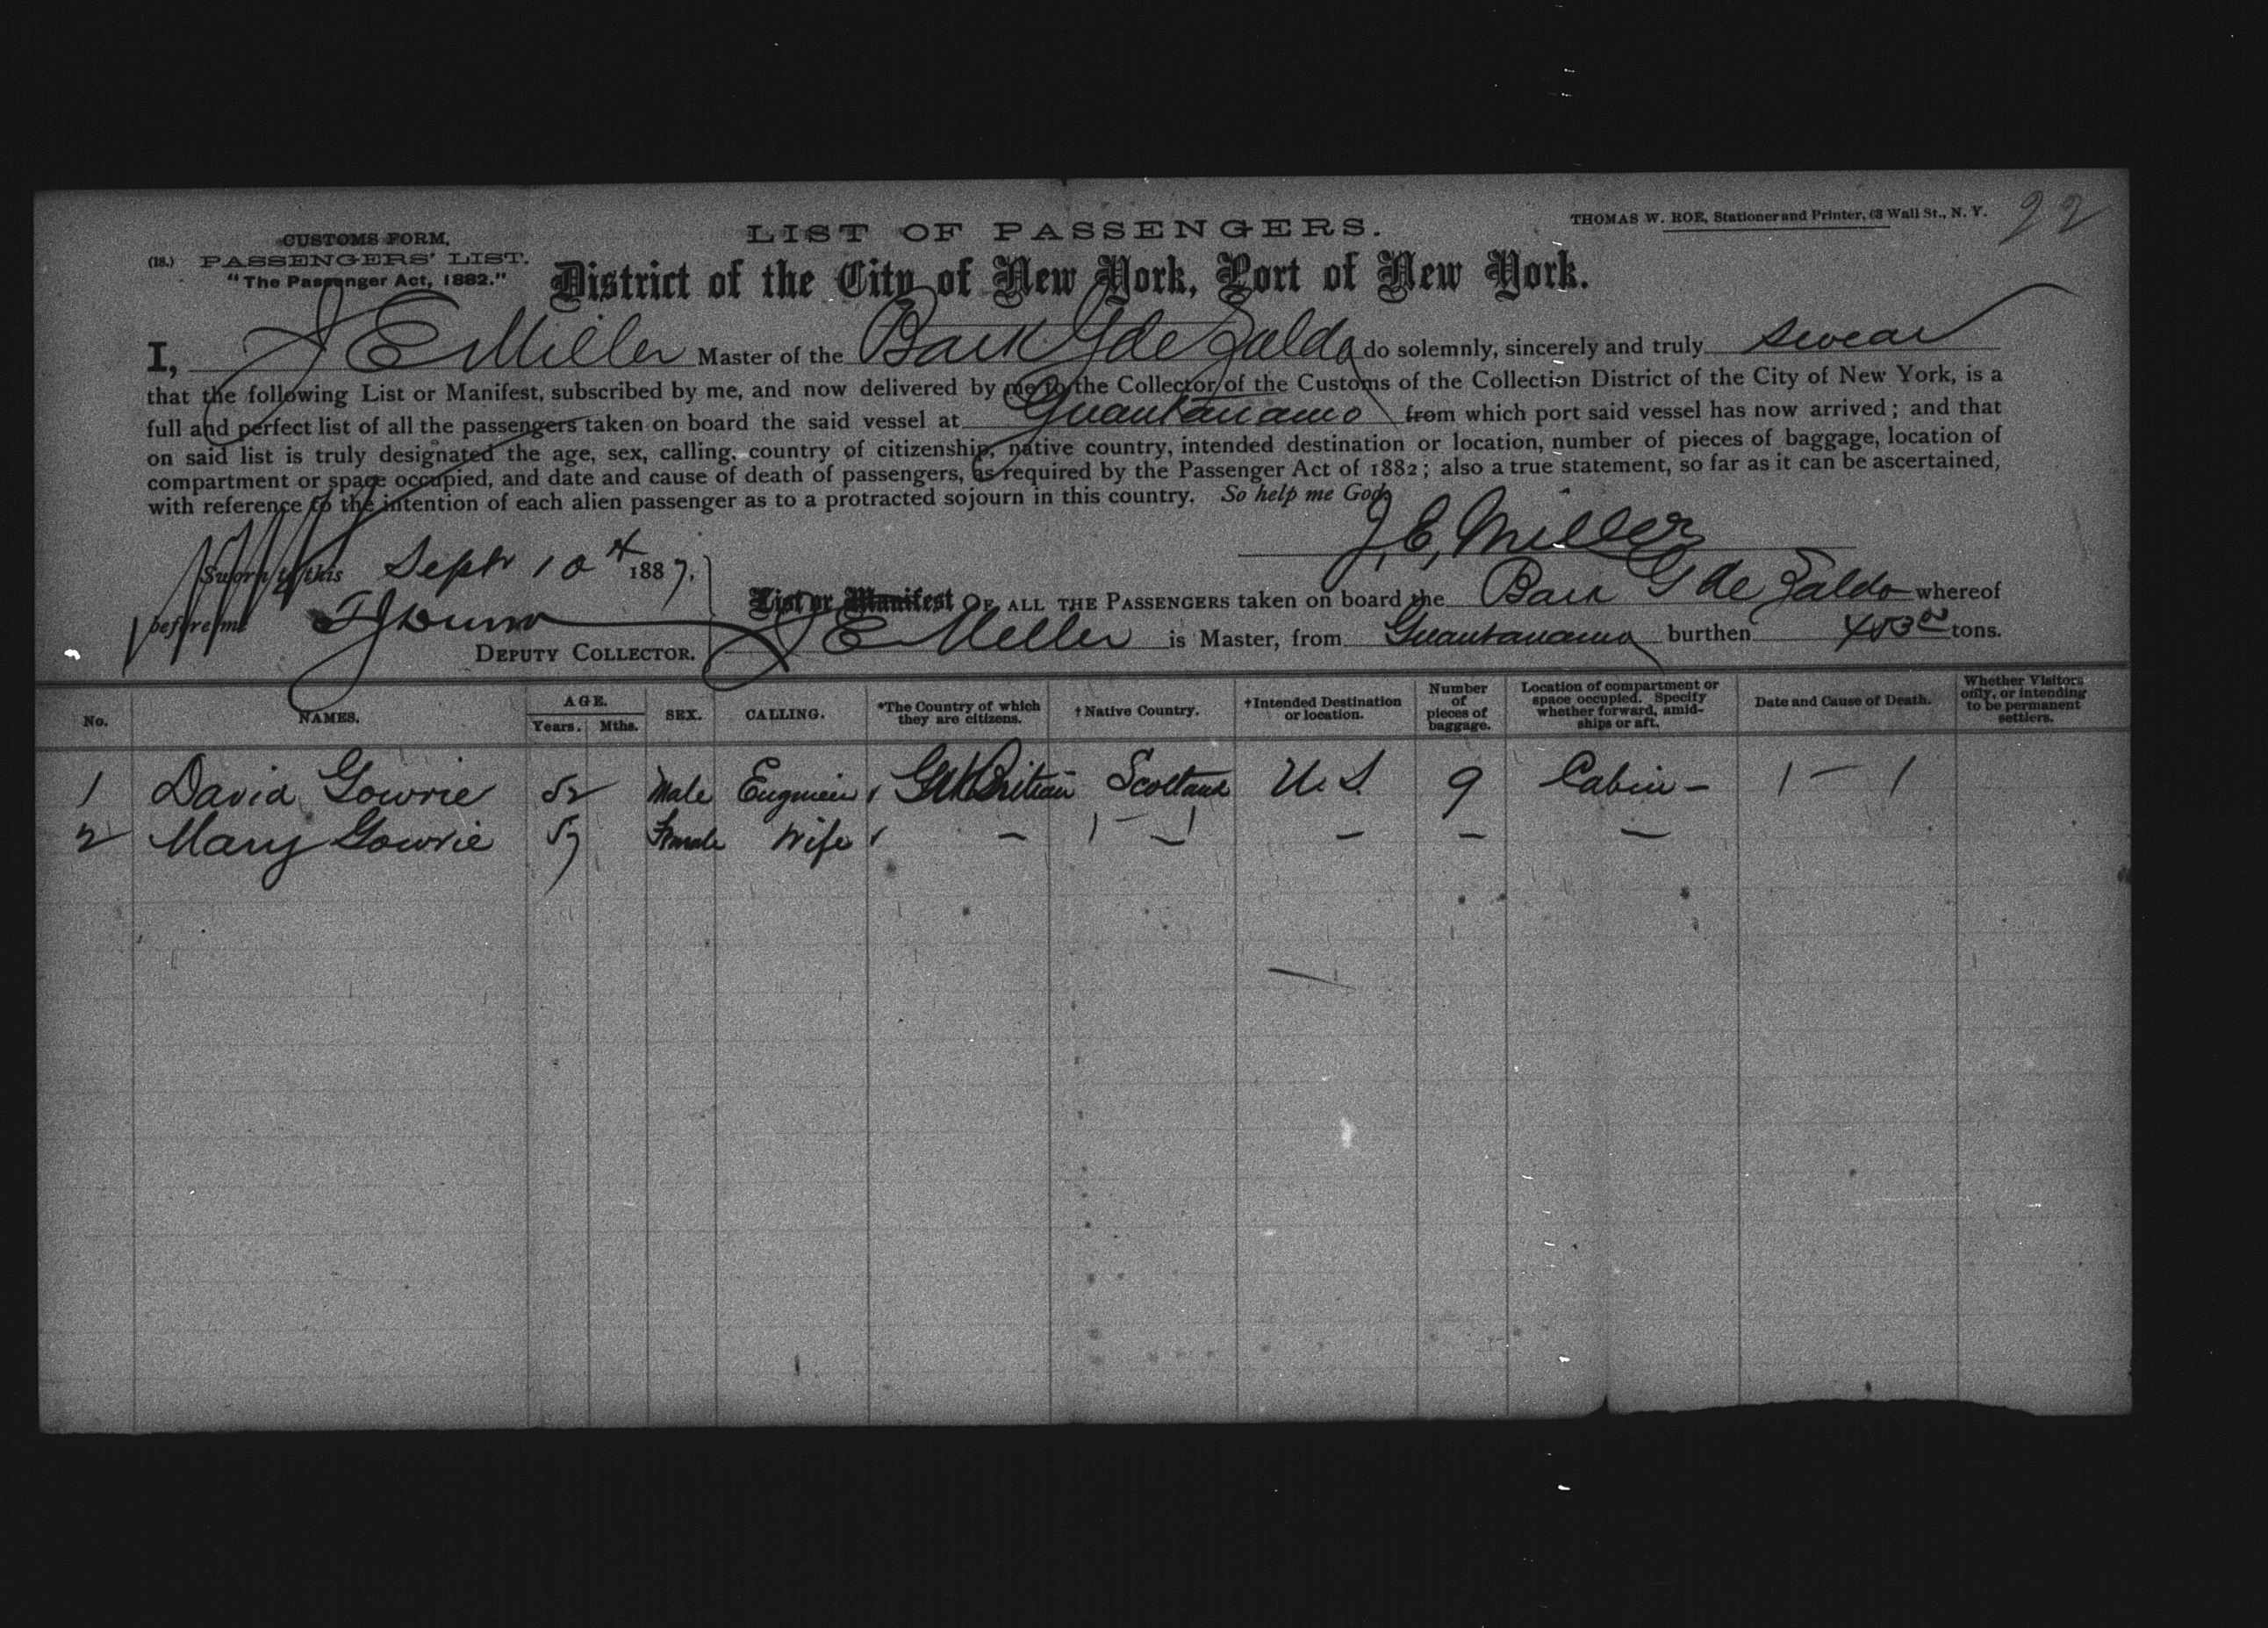 22
THOMAS W. ROE, Stationer and Printer, 63 Wall St., N. Y.
LIST OF PASSENGERS.
CUSTOMS FORM,
(18.) PASSENGERS' LIST.
"The Passenger Act, 1882."
District of the City of New York, Port of New York.
I, J E Miller Master of the Bark G de Zaldo do solemnly, sincerely and truly swear
that the following List or Manifest, subscribed by me, and now delivered by me to the Collector of the Customs of the Collection District of the City of New York, is a
full and perfect list of all the passengers taken on board the said vessel at Guantanamo from which port said vessel has now arrived; and that
on said list is truly designated the age, sex, calling, country of citizenship, native country, intended destination or location, number of pieces of baggage, location of
compartment or space occupied, and date and cause of death of passengers, as required by the Passenger Act of 1882; also a true statement, so far as it can be ascertained,
with reference to the intention of each alien passenger as to a protracted sojourn in this country. So help me God.
J, E, Miller
Sworn to this Sept 10th 1887.
before me
DEPUTY COLLECTOR.
List or Manifest OF ALL THE PASSENGERS taken on board the Bark G de Zaldo whereof
J E Miller is Master, from Guantanamo burthen tons.
No. NAMES. AGE. Years. Mths. SEX. CALLING. *The Country of which they are citizens. †Native Country. †Intended Destination or location. Number of pieces of baggage. Location of compartment or space occupied. Specify whether forward, amidships or aft. Date and Cause of Death. Whether Visitors only, or intending to be permanent settlers.
1 David Gowrie 52 Male Engineer Gt Britian Scotland U. S. 9 Cabin –
2 Mary Gowrie 57 Female Wife — — — — —